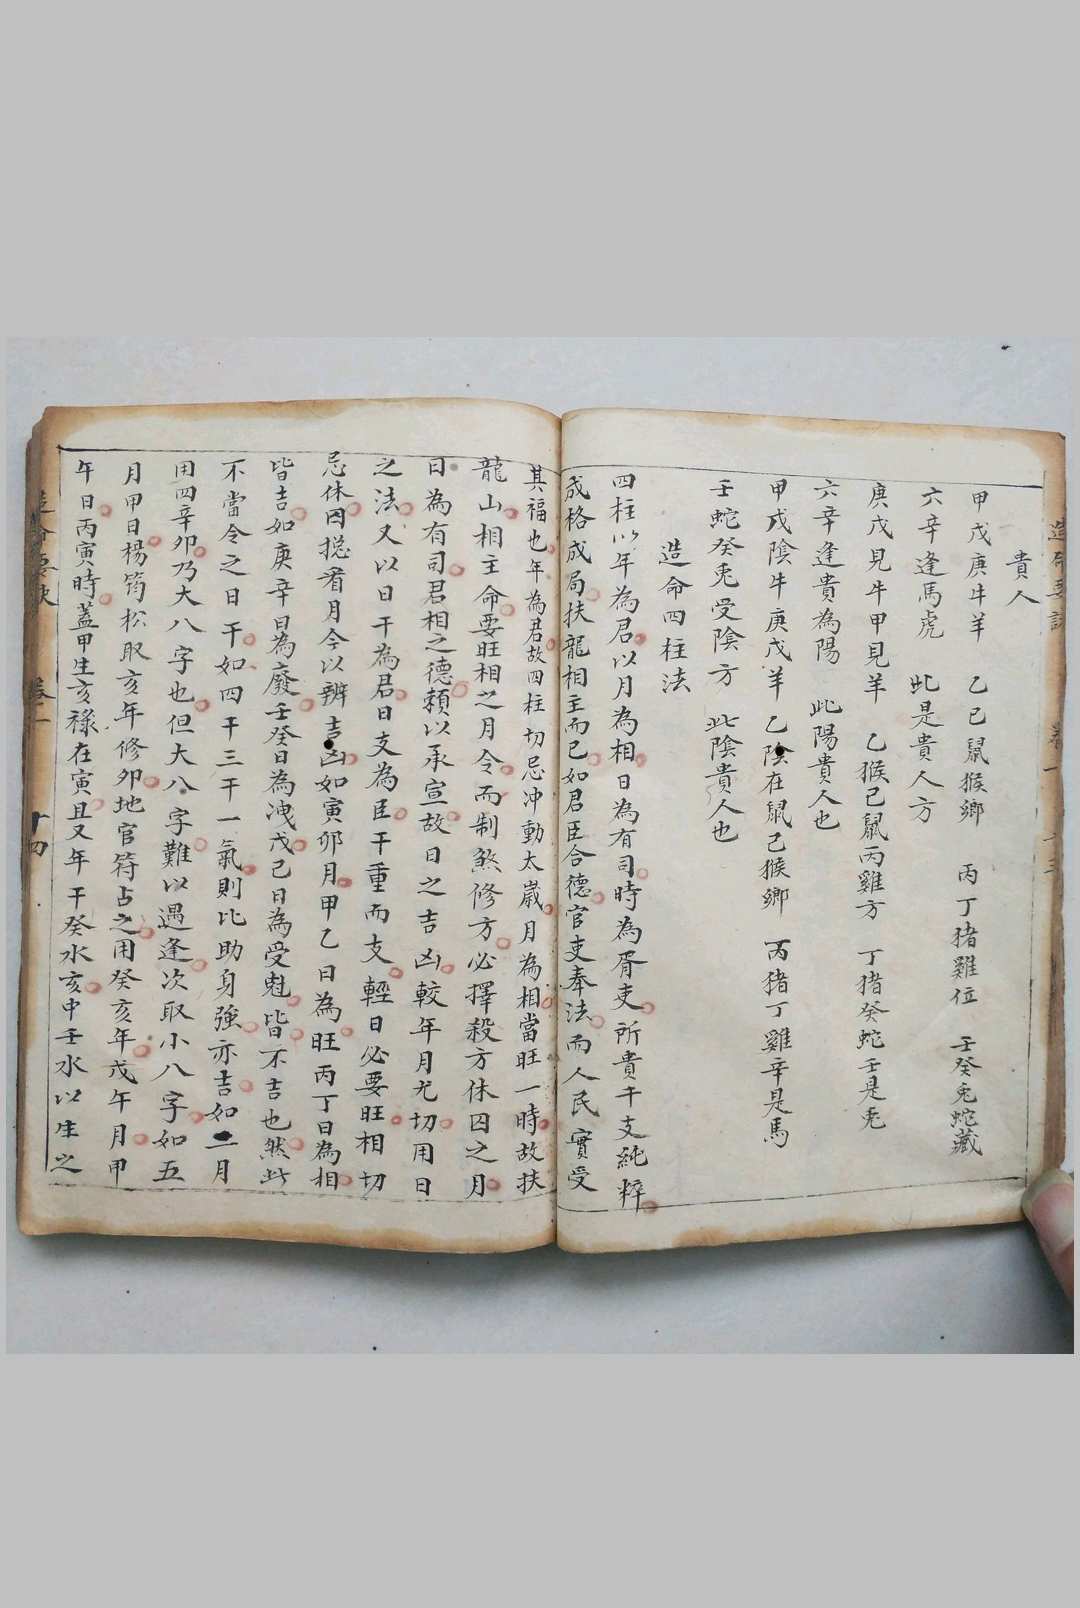 貴人
甲戊庚牛羊 乙己鼠猴鄉 丙丁猪雞位 壬癸兎蛇藏
六辛逢馬虎 此是貴人方
庚戊見牛甲見羊 乙猴己鼠丙雞方 丁猪癸蛇壬是兎
六辛逢貴為陽 此陽貴人也
甲戊陰牛庚戊羊 乙陰在鼠己猴鄉 丙猪丁雞辛是馬
壬蛇癸兎受陰方 此陰貴人也
造命四柱法
四柱以年為君以月為相日為有司時為胥吏所貴干支純粹
成格成局扶龍相主而已如君臣合德官吏奉法而人民實受
其福也年為君故四柱切忌冲動太歲月為相當旺一時故扶
龍山相主命要旺相之月令而制煞修方必擇殺方休囚之月
日為有司君相之德頼以承宣故日之吉凶較年月尤切用日
之法又以日干為君日支為臣干重而支輕日必要旺相切
忌休囚揔看月令以辨吉凶如寅卯月甲乙日為旺丙丁日為相
皆吉如庚辛日為廢壬癸日為洩戊己日為受尅皆不吉也然此
不當令之日干如四干三干一氣則比助身強亦吉如二月
用四辛卯乃大八字也但大八字難以遇逢次取小八字如五
月甲日楊筠松取亥年修卯地官符占之用癸亥年戊午月甲
午日丙寅時蓋甲生亥祿在寅且又年干癸水亥中壬水以生之
造命要訣 卷一 十四